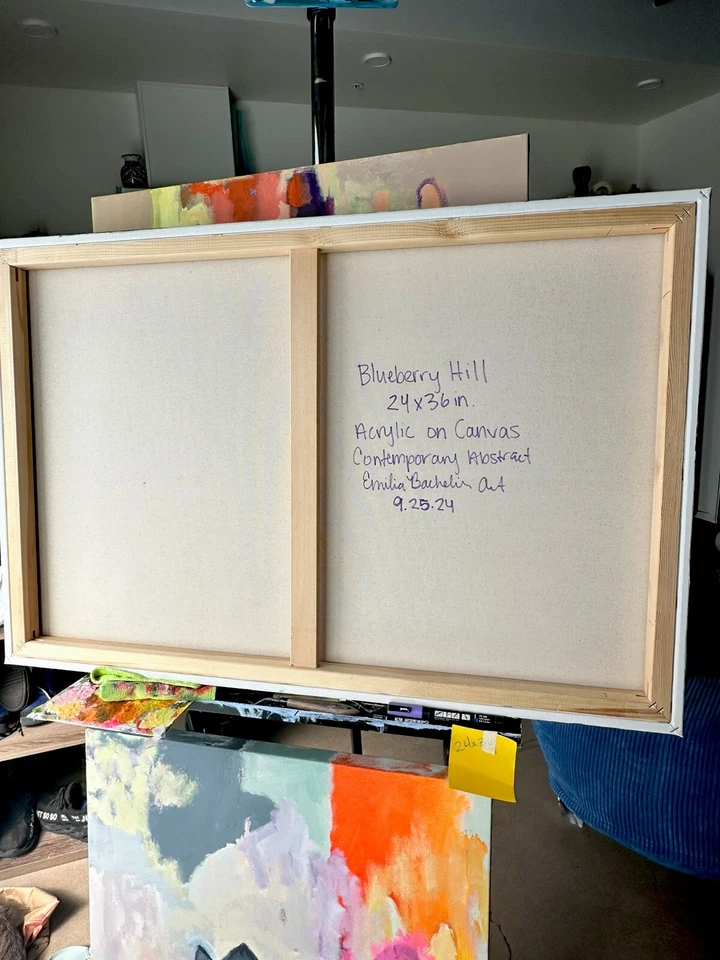 Blueberry Hill
24x36 in.
Acrylic on Canvas
Contemporary Abstract
Emilia Bachelin Art
9.25.24
24x3